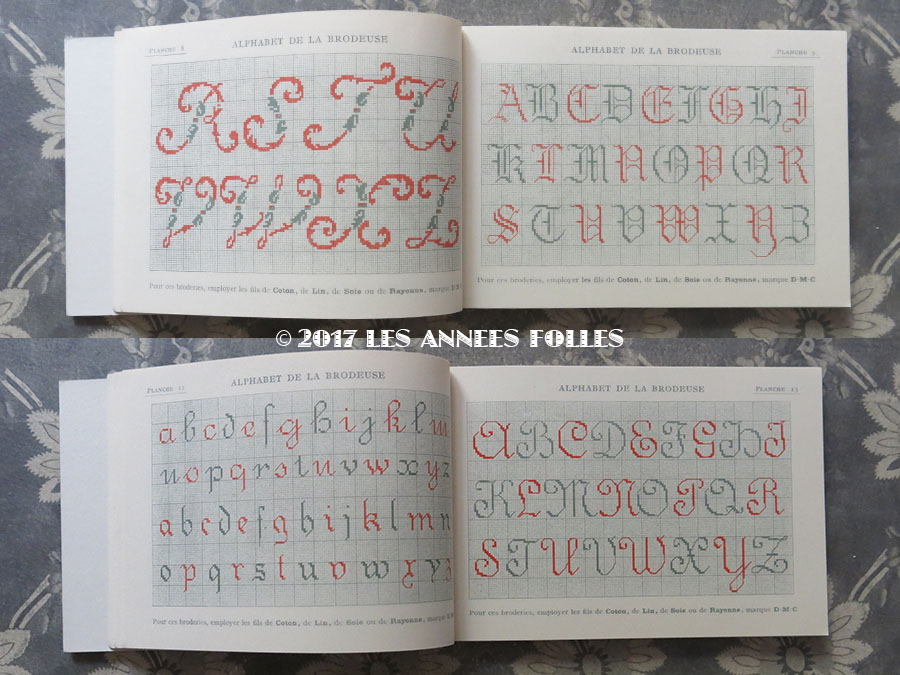 PLANCHE 8
ALPHABET DE LA BRODEUSE
R S T U
V W X Z
Pour ces broderies, employer les fils de Coton, de Lin, de Soie ou de Rayonne, marque D·M
ALPHABET DE LA BRODEUSE
PLANCHE 9
A B C D E F G H I
K L M N O P Q R
S T U V W X Y Z
Pour ces broderies, employer les fils de Coton, de Lin, de Soie ou de Rayonne, marque D·M·C
© 2017 LES ANNEES FOLLES
PLANCHE 12
ALPHABET DE LA BRODEUSE
a b c d e f g h i j k l m
n o p q r s t u v w x y z
a b c d e f g h i j k l m n
o p q r s t u v w x y z
Pour ces broderies, employer les fils de Coton, de Lin, de Soie ou de Rayonne, marque
ALPHABET DE LA BRODEUSE
PLANCHE 13
A B C D E F G H I
K L M N O P Q R
S T U V W X Y Z
Pour ces broderies, employer les fils de Coton, de Lin, de Soie ou de Rayonne, marque D·M·C